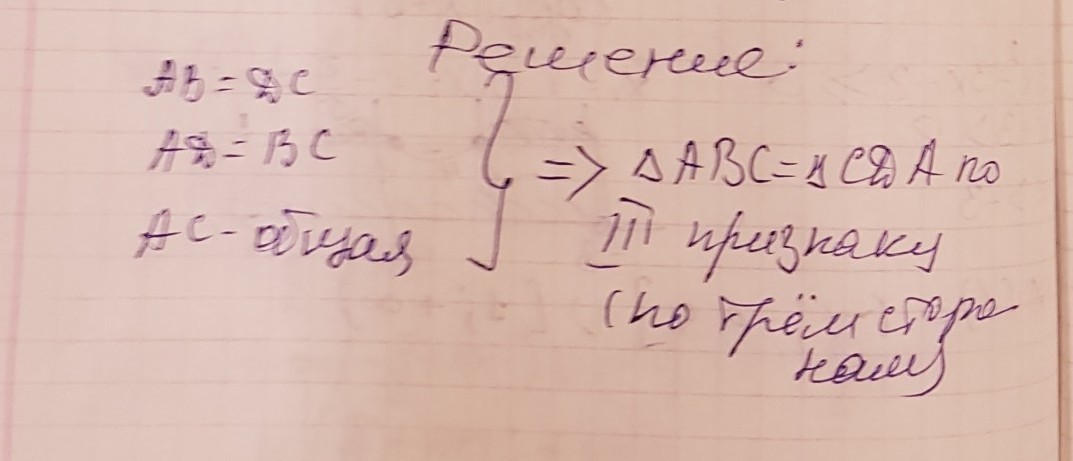 Решение:
AB = DC
AD = BC
AC - общая
=> Δ ABC = Δ CDA по
III признаку
(по трём сторо
нам)